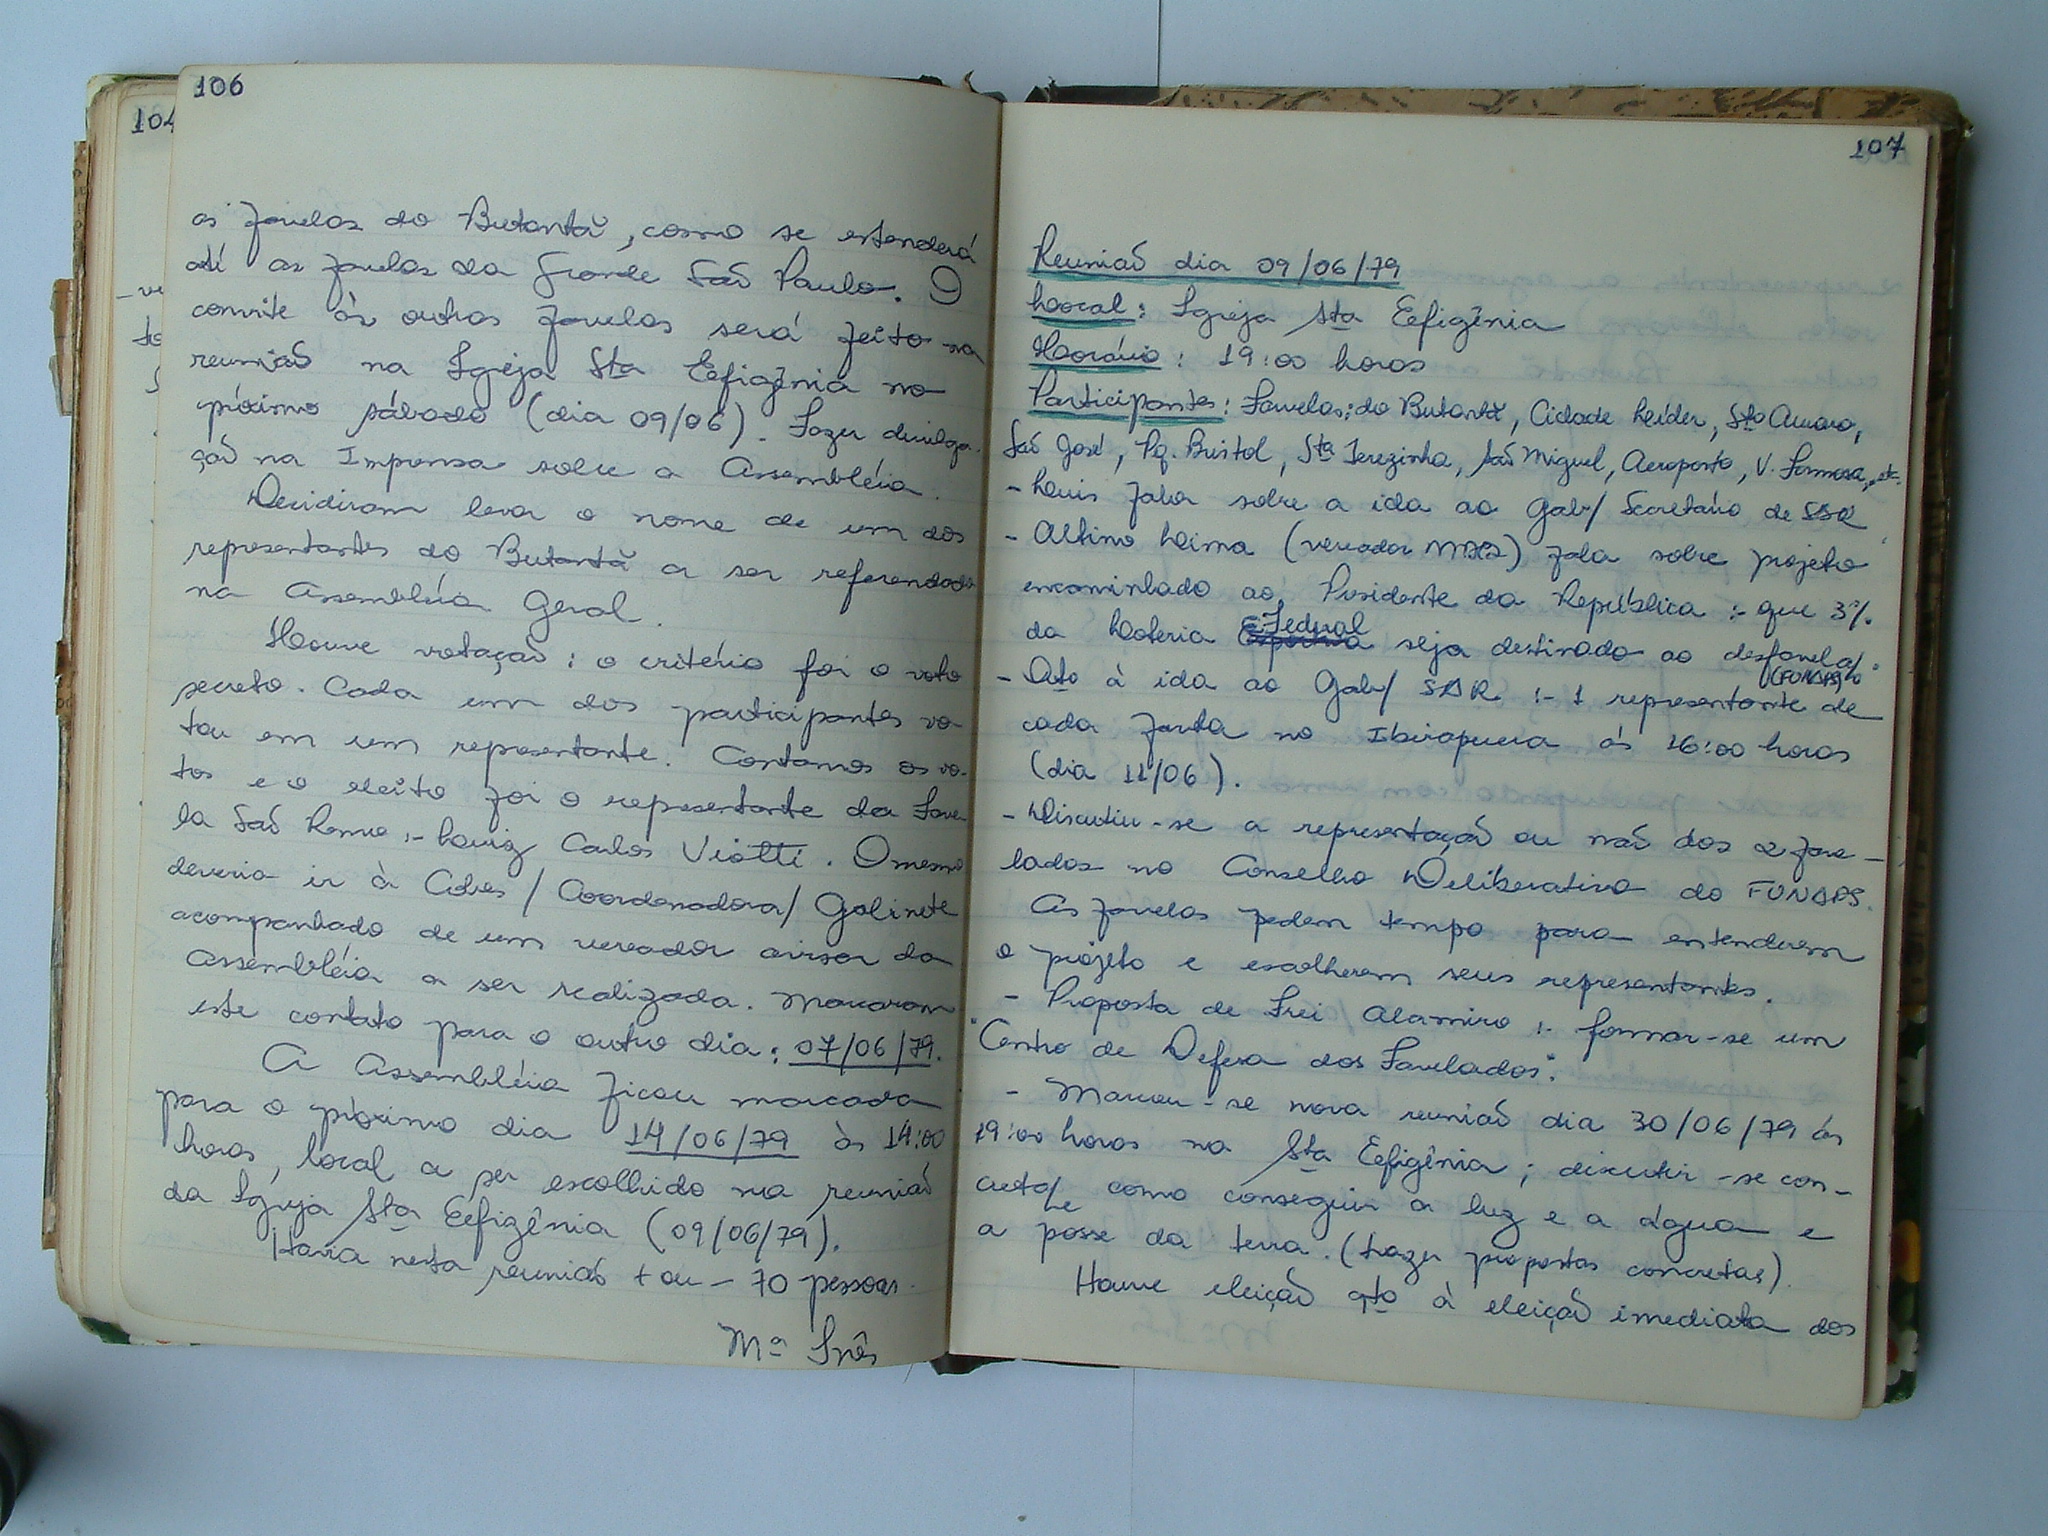 106
as favelas do Butantã, como se estenderá
até as favelas da Grande São Paulo. O
convite às outras favelas será feito na
reunião na Igreja Sta Eefigênia no
próximo sábado (dia 09/06). Fazer divulga-
ção na Imprensa sobre a Assembléia.
Decidiram levar o nome de um dos
representantes do Butantã a ser referendado
na Assembléia Geral.
Houve votação: o critério foi o voto
secreto. Cada um dos participantes vo-
tou em um representante. Contamos os vo-
tos e o eleito foi o representante da Fave-
la São Remo :- Luiz Carlos Viotti. O mesmo
deveria ir à Cobes / Coordenadora / Gabinete
acompanhado de um vereador avisar da
Assembléia a ser realizada. Marcaram
este contato para o outro dia: 07/06/79.
A Assembléia ficou marcada
para o próximo dia 14/06/79 às 14:00
horas, local a ser escolhido na reunião
da Igreja Sta Eefigênia (09/06/79).
Havia nesta reunião + ou - 70 pessoas.
Mª Inês
104
107
Reunião dia 09/06/79
Local: Igreja Sta Eefigênia
Horário: 19:00 horas
Participantes: Favelas: do Butantã, Cidade Leider, Sto Amaro,
São José, Pq. Bristol, Sta Terezinha, São Miguel, Aeroporto, V. Formosa, etc.
- Luis fala sobre a ida ao Gab/ Secretário de SAR
- Altino Leima (vereador MDB) fala sobre projeto
encaminhado ao Presidente da República :- que 3%
da Loteria Federal seja destinado ao desfavela/o
(FUNAPS)
- Qto à ida ao Gab/ SAR :- 1 representante de
cada farta no Ibirapuera às 16:00 horas
(dia 11/06).
- Discutiu-se a representação ou não dos 2 fave-
lados no Conselho Deliberativo do FUNAPS.
As favelas pedem tempo para entenderem
o projeto e escolherem seus representantes.
- Proposta de Frei Alamiro :- formar-se um
"Centro de Defesa dos Favelados".
- Marcou-se nova reunião dia 30/06/79 às
19:00 horas na Sta Eefigênia; discutir-se con-
creta/e como conseguir a luz e a água e
a posse da terra. (trazer propostas concretas).
Houve eleição qto à eleição imediata dos